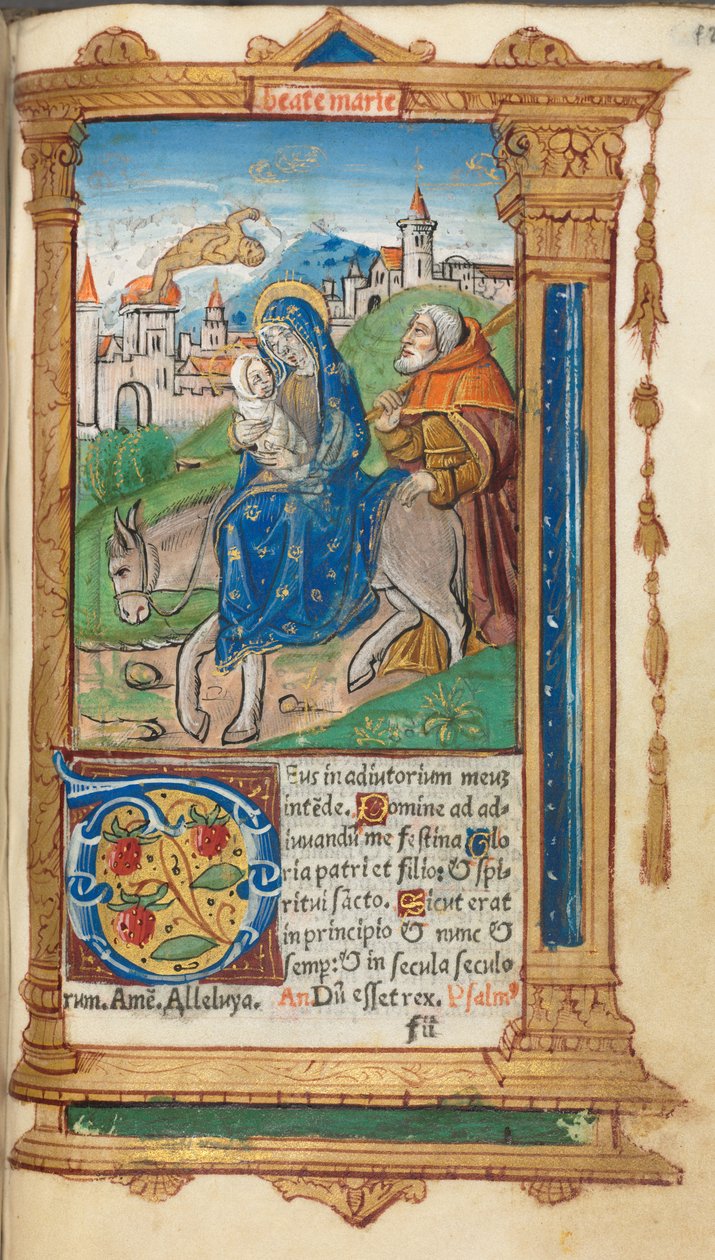 beate marie
Deus in adiutorium meuʒ
intẽde. Domine ad ad-
iuuandũ me festina. Glo
ria patri et filio: & spi-
ritui sãcto. Sicut erat
in principio & nunc &
semp̱: & in secula seculo
rum. Amẽ. Alleluya. An Dũ esset rex. Psalmꝰ
fii